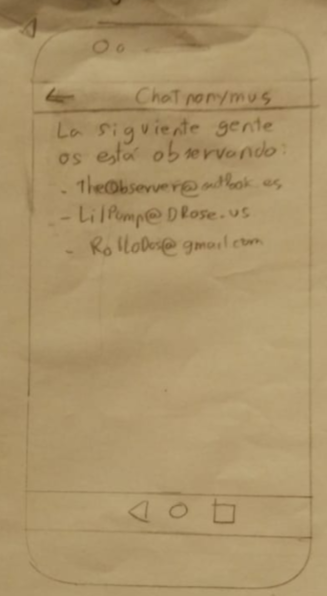 ChaTnonymus
La siguiente gente
os está observando:
- TheObserver@outlook.es
- LilPump@DRose.us
- RolloDos@gmail.com